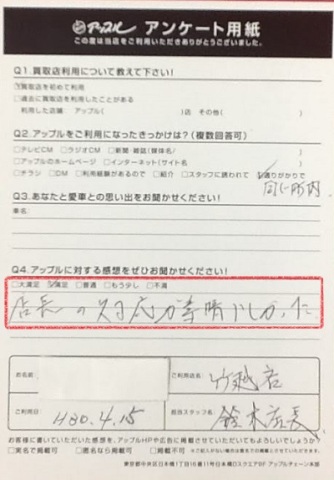 アップル アンケート用紙
この度は当店をご利用いただきありがとうございました。
Q1.買取店利用について教えて下さい!
☑買取店を初めて利用
□過去に買取店を利用したことがある
利用した店舗 アップル( )店 その他( )
Q2.アップルをご利用になったきっかけは?(複数回答可)
□テレビCM □ラジオCM □新聞・雑誌(媒体名/ )
□アップルのホームページ □インターネット(サイト名 )
□チラシ □DM □利用経験があるので □紹介 □スタッフに誘われて ☑通りがかりで
同じ所内
Q3.あなたと愛車との思い出をお聞かせください!
車名:
Q4.アップルに対する感想をぜひお聞かせください!
□大満足 ☑満足 □普通 □もう少し □不満
店長の対応が素晴らしかった
お名前
ご利用店名
竹越店
ご利用日
H30.4.15
担当スタッフ名
鈴木店長
お客様に書いていただいた感想を、アップルHPや広告に掲載させていただいてもよろしいでしょうか?
□実名で掲載可 □匿名なら掲載可 □掲載不可
東京都中央区日本橋1丁目16番11号日本橋Dスクエア8F アップルチェーン本部